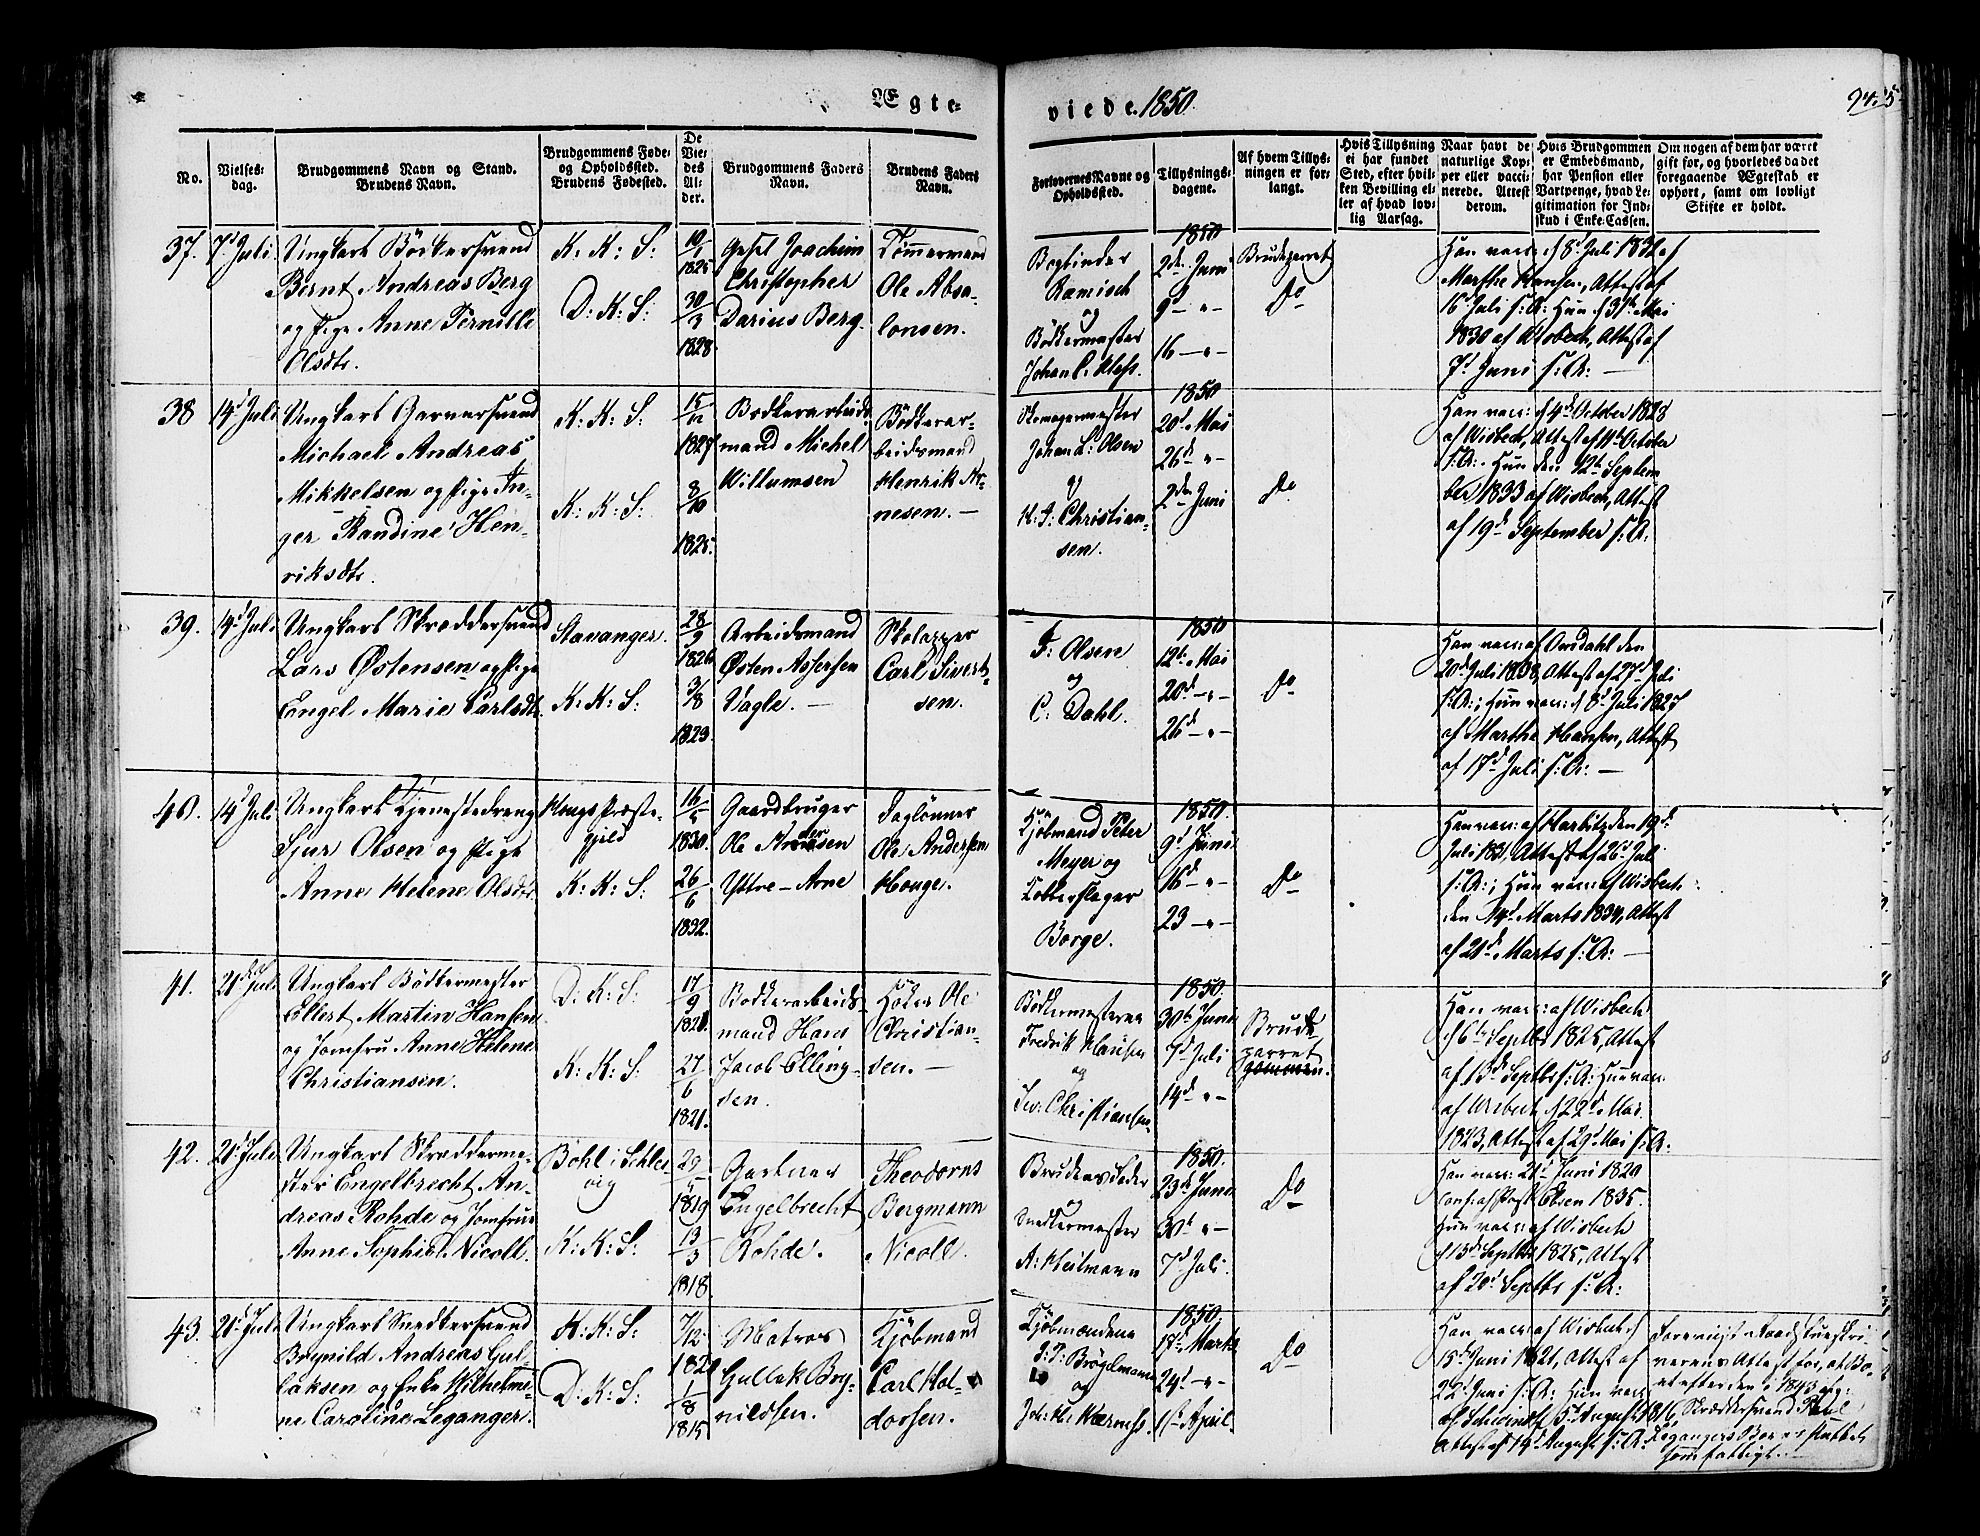 Ægte-
viede 1850.
No.
Vielses-
dag.
Brudgommens Navn og Stand.
Brudens Navn.
Brudgommens Føde-
og Opholdssted.
Brudens Fødested.
De
Vie-
des
Al-
der.
Brudgommens Faders
Navn.
Brudens Faders
Navn.
Forlovernes Navne og
Opholdssted.
Tillysnings-
dagene.
Af hvem Tillys-
ningen er for-
langt.
Hvis Tillysning
ei har fundet
Sted, efter hvil-
ken Bevilling el-
ler af hvad lov-
lig Aarsag.
Naar havt de
naturlige Kop-
per eller vacci-
nerede. Attest
derom.
Hvis Brudgommen
er Embedsmand,
har Pension eller
Vartpenge, hvad Le-
gitimation for Ind-
skud i Enke-Cassen.
Om nogen af dem har været
gift før, og hvorledes da det
foregaaende Ægteskab er
ophørt, samt om lovligt
Skifte er holdt.
37.
7d Juli
Ungkarl Bödkersvend
Bernt Andreas Berg
og Pige Anne Pernille
Olsdtr.
K: K: S:
D: K: S:
10/1
1825
30/3
1828.
Joachim
Christopher
Darius Berg.
Tømmermand
Ole Absa-
lonsen.
Bogbinder
Ramisch
og
Bödkermester
Johan C. Klehs.
1850
2den Juni
9d -"-
16 -"-
Brudeparret
Do
Han vacc: d 8d Juli 1831 af
Marthe Hansen, Attest af
16 Juli s: A: Hun d 31te Mai
1830 af Wisbech, Attest af
7d Juni s: A: —
38
14d Juli
Ungkarl Garversvend
Michael Andreas
Mikkelsen og Pige In-
ger Randine Hen-
riksdtr.
K: K: S:
K: K: S:
15/11
1827
8/10
1825.
Bödkerarbeids-
mand Michel
Willumsen
Bödkerar-
beidsmand
Henrik Ar-
nesen. —
Skomagermester
Johan L: Olsen
og
H: J: Christian-
sen.
1850
20d Mai
26d -"-
2den Juni
Do
Han vacc: d 4d October 1828
af Wisbech, Attest af 11te October
s: A: Hun den 12te Septem
ber 1833 af Wisbech, Attest
af 19d September s: A:
39.
14d Juli
Ungkarl Skræddersvend
Lars Østensen og Pige
Engel Marie Carlsdtr.
Stavanger.
K: K: S:
28/9
1826
3/8
1823.
Arbeidsmand
Østen Assersen
Vagle. —
Skolapper
Carl Sivert-
sen.
F: Olsen
og
C: Dahl.
1850
12te Mai
20d -"-
26d -"-
Do
Han vacc: af Omdahl den
20d Juli 1838, Attest af 27d Juli
s: A:; Hun vacc: d 8d Juli 1827
af Marthe Hansen, Attest
af 17d Juli s: A: —
40.
14d Juli
Ungkarl Tjenestedreng
Sjur Olsen og Pige
Anne Helene Olsdtr.
Hougs Præste-
gjeld
K: K: S:
16/5
1830.
26/6
1832.
Gaardbruger
Ole Andersen
Yttre-Arne
Daglönner
Ole Andersen
Houge.
Kjöbmand Peter
Meyer og
Kobberslager
Borge.
1850.
9d Juni
16d -"-
23 -"-
Do
Han vacc: af Harbitz den 19de
Juli 1831, Attest af 26d Juli
s: A:; Hun vacc: af Wisbech
den 14d Marts 1834, Attest
af 21d Marts s: A: —
41.
21d Juli
Ungkarl Bödkermester
Ellert Martin Hansen
og Jomfru Anne Helene
Christiansen.
D: K: S:
K: K: S:
17/9
27/6
1821.
Bödkerarbeids-
mand Hans
Jacob Elling-
sen.
Höker Ole
Christian-
sen. —
Bödkermesterne
Fredrik Hansen
og
Christiansen
1850.
30te Juni
7d Juli
14d -"-
Brude
parret
Han vacc: af Wisbech
d 6te Septbr 1825, Attest
af 13d Septbr s: A: Hun vacc.
af Wisbech d 22d Mai
1823, Attest af 29d Mai s: A:
42.
21d Juli
Ungkarl Skrædderme-
ster Engelbrecht An-
dreas Rohde og Jomfru
Anne Sophie Nicoll.
Bohl i Schles-
vig
K: K: S:
1819
13/3
1818.
Gartner
Engelbrecht
Rohde.
Theodorus
Bergmann
Nicoll.
Brudens Fader
og
Snedkermester
A: Heitmann
1850.
23d Juni
30te -"-
7d Juli.
Do
Han vacc: 21d Juni 1820
conf: af Past. 1835.
Hun vacc: af Wisbech
d 13d Septbr 1825, Attest
af 20d Septbr s: A:
43.
21d Juli
Ungkarl Snedkersvend
Brynild Andreas Gul-
laksen og Enke Wilhelmi-
ne Caroline Leganger.
K: K: S:
D: K: S:
7/12
1820
1/8
1815
Matros
Gullak Bry-
nildsen.
Kjöbmand
Carl Hol-
dorsen.
Kjöbmændene
J: P: Brögelmann
og
Joh: H: Warncks.
1850.
17d Marts
24d -"-
1ste April.
Do
Han vacc: af Wisbech d
15d Juni 1821, Attest af
22d Juni s: A: Hun vacc
af Schwindt d 5d August 1816,
Attest af 14d August s: A:
Forevist Raadstueskri-
verens Attest for, at Bo-
et efter den i 1843 afg:
Skræddersvend Poul
Legangers Bo er sluttet
som fattigt.